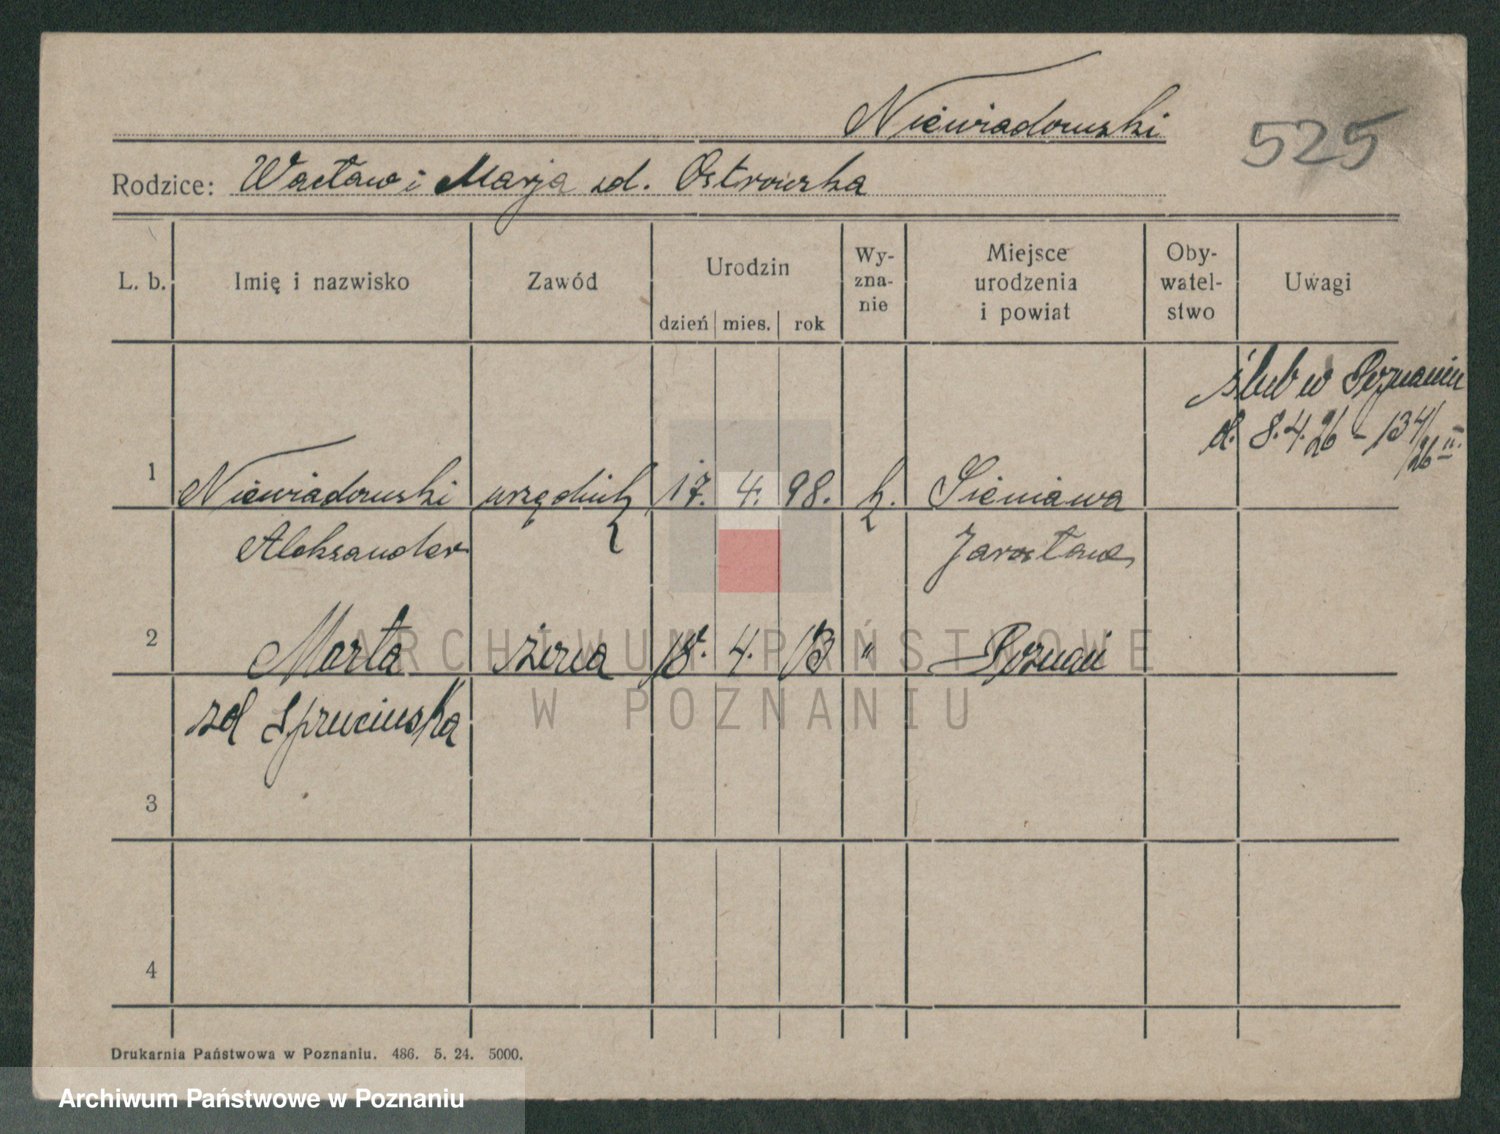 Niewiadomski
525
Rodzice: Wacław i Marja zd. Ostrowska
L. b.
Imię i nazwisko
Zawód
Urodzin
dzień mies. rok
Wy-
zna-
nie
Miejsce
urodzenia
i powiat
Oby-
watel-
stwo
Uwagi
ślub w Poznaniu
d. 8.4.26 – 134/26 II.
1 Niewiadomski urzędnik 17. 4. 98. k. Sieniawa
Aleksander Jarosław
2 Marta żona 18. 4. " Poznań
zd
3
4
ARCHIWUM PAŃSTWOWE
W POZNANIU
Drukarnia Państwowa w Poznaniu. 486. 5. 24. 5000.
Archiwum Państwowe w Poznaniu